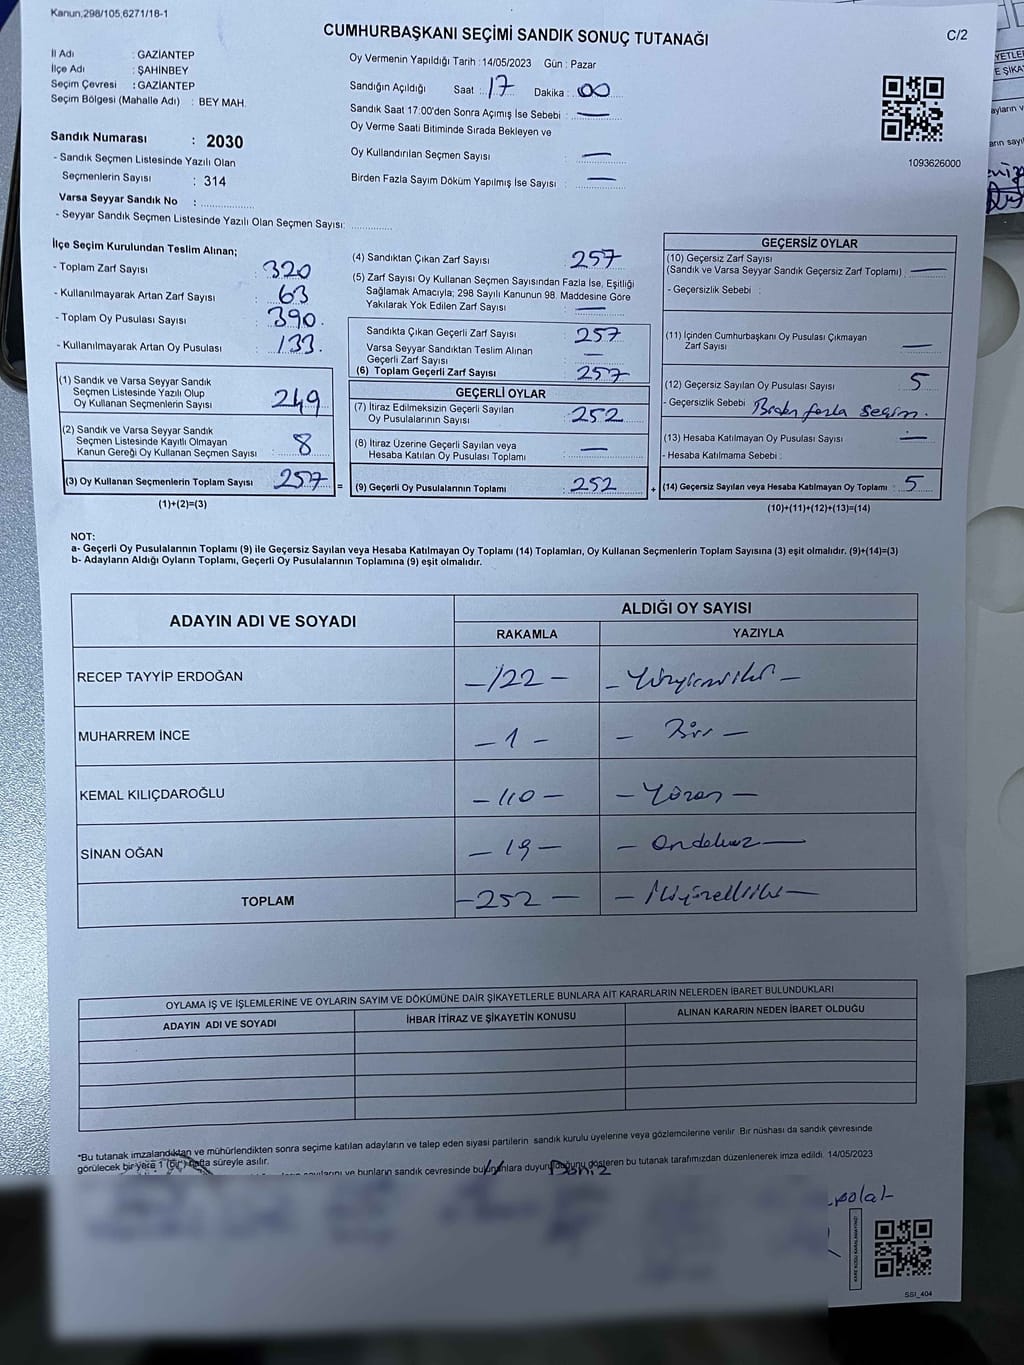 Kanun;298/105,6271/18-1
CUMHURBAŞKANI SEÇİMİ SANDIK SONUÇ TUTANAĞI
C/2
İl Adı : GAZİANTEP
İlçe Adı : ŞAHİNBEY
Seçim Çevresi : GAZİANTEP
Seçim Bölgesi (Mahalle Adı) : BEY MAH.
Sandık Numarası : 2030
- Sandık Seçmen Listesinde Yazılı Olan
Seçmenlerin Sayısı : 314
Varsa Seyyar Sandık No :
- Seyyar Sandık Seçmen Listesinde Yazılı Olan Seçmen Sayısı:
Oy Vermenin Yapıldığı Tarih : 14/05/2023 Gün : Pazar
Sandığın Açıldığı Saat : 17 Dakika : 00
Sandık Saat 17:00'den Sonra Açımış İse Sebebi : —
Oy Verme Saati Bitiminde Sırada Bekleyen ve
Oy Kullandırılan Seçmen Sayısı : —
Birden Fazla Sayım Döküm Yapılmış İse Sayısı : —
1093626000
İlçe Seçim Kurulundan Teslim Alınan;
- Toplam Zarf Sayısı : 320
- Kullanılmayarak Artan Zarf Sayısı : 63
- Toplam Oy Pusulası Sayısı : 390
- Kullanılmayarak Artan Oy Pusulası : 133
(1) Sandık ve Varsa Seyyar Sandık
Seçmen Listesinde Yazılı Olup
Oy Kullanan Seçmenlerin Sayısı : 249
(2) Sandık ve Varsa Seyyar Sandık
Seçmen Listesinde Kayıtlı Olmayan
Kanun Gereği Oy Kullanan Seçmen Sayısı : 8
(3) Oy Kullanan Seçmenlerin Toplam Sayısı : 257 =
(1)+(2)=(3)
(4) Sandıktan Çıkan Zarf Sayısı : 257
(5) Zarf Sayısı Oy Kullanan Seçmen Sayısından Fazla İse, Eşitliği
Sağlamak Amacıyla; 298 Sayılı Kanunun 98. Maddesine Göre
Yakılarak Yok Edilen Zarf Sayısı : —
Sandıkta Çıkan Geçerli Zarf Sayısı : 257
Varsa Seyyar Sandıktan Teslim Alınan
Geçerli Zarf Sayısı : —
(6) Toplam Geçerli Zarf Sayısı : 257
GEÇERLİ OYLAR
(7) İtiraz Edilmeksizin Geçerli Sayılan
Oy Pusulalarının Sayısı : 252
(8) İtiraz Üzerine Geçerli Sayılan veya
Hesaba Katılan Oy Pusulası Toplamı : —
(9) Geçerli Oy Pusulalarının Toplamı : 252 +
GEÇERSİZ OYLAR
(10) Geçersiz Zarf Sayısı
(Sandık ve Varsa Seyyar Sandık Geçersiz Zarf Toplamı) : —
- Geçersizlik Sebebi :
(11) İçinden Cumhurbaşkanı Oy Pusulası Çıkmayan
Zarf Sayısı : —
(12) Geçersiz Sayılan Oy Pusulası Sayısı : 5
- Geçersizlik Sebebi : Birden fazla seçim.
(13) Hesaba Katılmayan Oy Pusulası Sayısı : —
- Hesaba Katılmama Sebebi :
(14) Geçersiz Sayılan veya Hesaba Katılmayan Oy Toplamı : 5
(10)+(11)+(12)+(13)=(14)
NOT:
a- Geçerli Oy Pusulalarının Toplamı (9) ile Geçersiz Sayılan veya Hesaba Katılmayan Oy Toplamı (14) Toplamları, Oy Kullanan Seçmenlerin Toplam Sayısına (3) eşit olmalıdır. (9)+(14)=(3)
b- Adayların Aldığı Oyların Toplamı, Geçerli Oy Pusulalarının Toplamına (9) eşit olmalıdır.
ADAYIN ADI VE SOYADI
ALDIĞI OY SAYISI
RAKAMLA YAZIYLA
RECEP TAYYİP ERDOĞAN – 122 – – Yüzyirmiiki –
MUHARREM İNCE – 1 – – Bir –
KEMAL KILIÇDAROĞLU – 110 – – Yüzon –
SİNAN OĞAN – 19 – – Ondokuz –
TOPLAM – 252 – – İkiyüzelliiki –
OYLAMA İŞ VE İŞLEMLERİNE VE OYLARIN SAYIM VE DÖKÜMÜNE DAİR ŞİKAYETLERLE BUNLARA AİT KARARLARIN NELERDEN İBARET BULUNDUKLARI
ADAYIN ADI VE SOYADI
İHBAR İTİRAZ VE ŞİKAYETİN KONUSU
ALINAN KARARIN NEDEN İBARET OLDUĞU
*Bu tutanak imzalandıktan ve mühürlendikten sonra seçime katılan adayların ve talep eden siyasi partilerin sandık kurulu üyelerine veya gözlemcilerine verilir. Bir nüshası da sandık çevresinde
görülecek bir yere 1 (bir) hafta süreyle asılır.
ve bunların sandık çevresinde bulunanlara duyurulduğunu gösteren bu tutanak tarafımızdan düzenlenerek imza edildi. 14/05/2023
Deniz
polat
KARE KODU KARALAMAYINIZ!
SSI_404